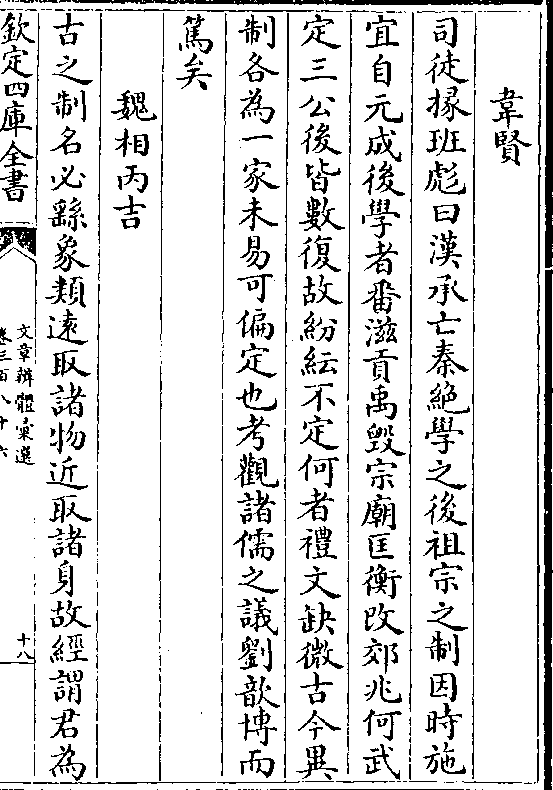 韋賢
司徒掾班彪曰漢承亡秦絶學之後祖宗之制因時施
宜自元成後學者番滋貢禹毀宗廟匡衡改郊兆何武
定三公後皆數復故紛紜不定何者禮文缺微古今異
制各為一家未易可偏定也考觀諸儒之議劉歆博而
篤矣
魏相丙吉
古之制名必繇象類遠取諸物近取諸身故經謂君為
欽定四庫全書
文章辨體彙選
卷三百八十六
十八